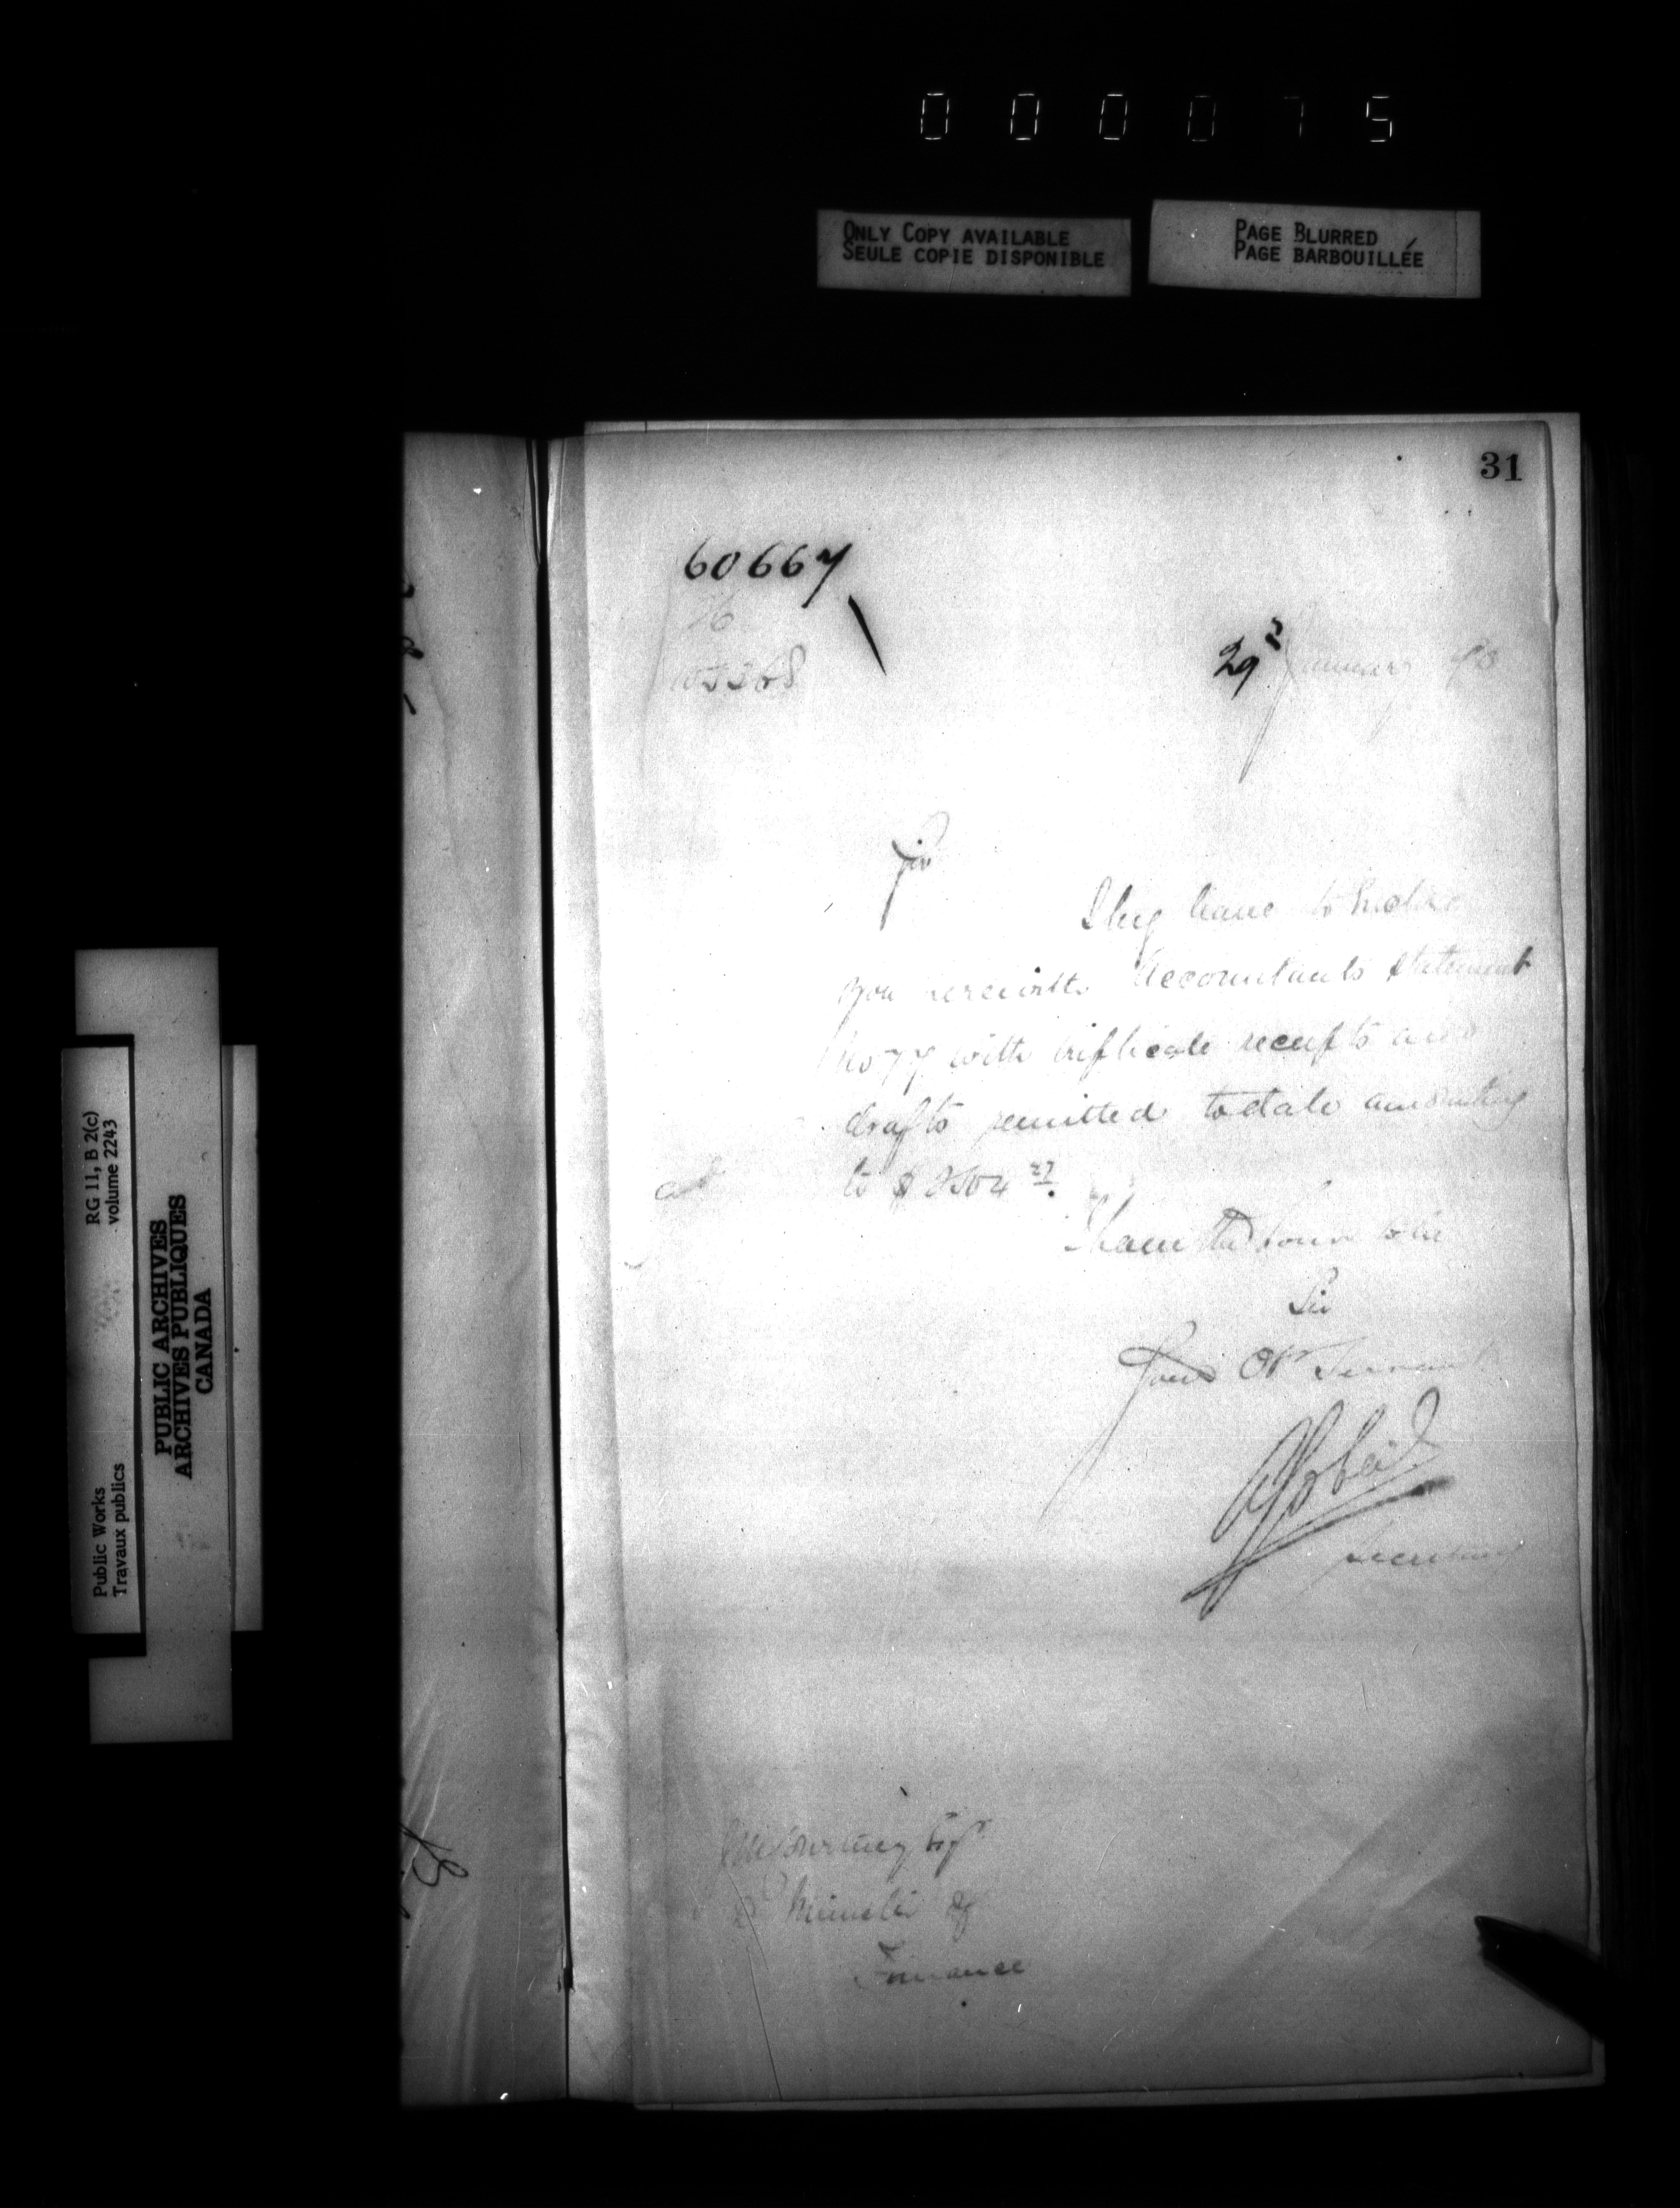 000075
ONLY COPY AVAILABLE
SEULE COPIE DISPONIBLE
PAGE BLURRED
PAGE BARBOUILLÉE
31
60667
29 January
Sir
I beg leave to
you herewith Accountants Statement
No 77 with triplicate receipts and
drafts remitted to date amounting
to $
I have the honor to be
Sir
Your Obt Servant
A Gobeil
Secretary
J M Courtney Esqr
D Minister of
Finance
Public Works
Travaux publics
RG 11, B 2(c)
volume 2243
PUBLIC ARCHIVES
ARCHIVES PUBLIQUES
CANADA